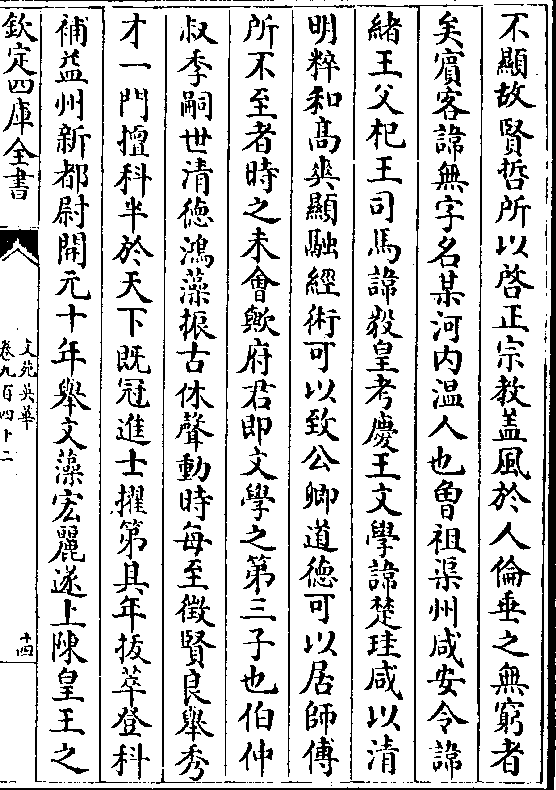 不顯故賢哲所以啓正宗教盖風於人倫垂之無窮者
矣賔客諱無字名某河内温人也魯祖渠州咸安令諱
緒王父杞王司馬諱毅皇考慶王文學諱楚珪咸以清
明粹和高爽顯融經術可以致公卿道德可以居師傅
所不至者時之未會歟府君即文學之第三子也伯仲
叔季嗣世清德鴻藻振古休聲動時每至徴賢良舉秀
才一門擅科半於天下既冠進士擢第其年拔萃登科
補益州新都尉開元十年舉文藻宏麗遂上陳皇王之
欽定四庫全書
文苑英華
卷九百四十二
十四